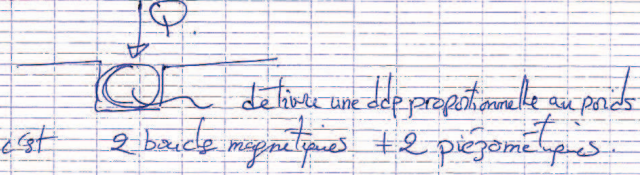 P
délivre une ddp proportionnelle au poids
est 2 boucle magnétiques + 2 piézométriques.